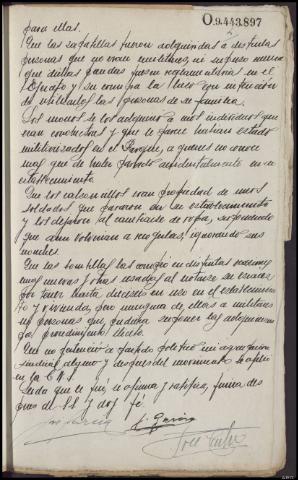 O.9.443.897
para ellas.
Que las zapatillas fueron adquiridas a distintas
personas que no eran militares, ni supuso nunca
que dichas prendas fuesen reglamentarias en el
Ejército y su compra la hizo con
las personas de su familia.
Los monos se los adquirió a unos individuos que
eran conocidos y que le parece habían estado
militarizados en el Parque, a quienes no conoce
mas que de haber parado accidentalmente en su
establecimiento.
Que los calzoncillos eran propiedad de unos
soldados que pararon en su establecimiento
y los dejaron al cambiarse de ropa, suponiendo
que aun volverian a recogerlas, ignorando sus
nombres.
Que las bombillas las compró en distintas ocasiones
unas nuevas y otras usadas, al notarse su escasez
por tener hasta dieciseis en uso en el establecimien
to y vivienda, pero ninguna de ellas a militares
ni personas que pudiera suponer las adquiriesen
por procedimiento ilícito.
Que no perteneció a partido político ni agrupación
sindical alguna y despues del movimiento se afilió
en la C.N.T.
Leida que le fué, se afirma y ratifica, firma des
pues de S.S. y doy fé